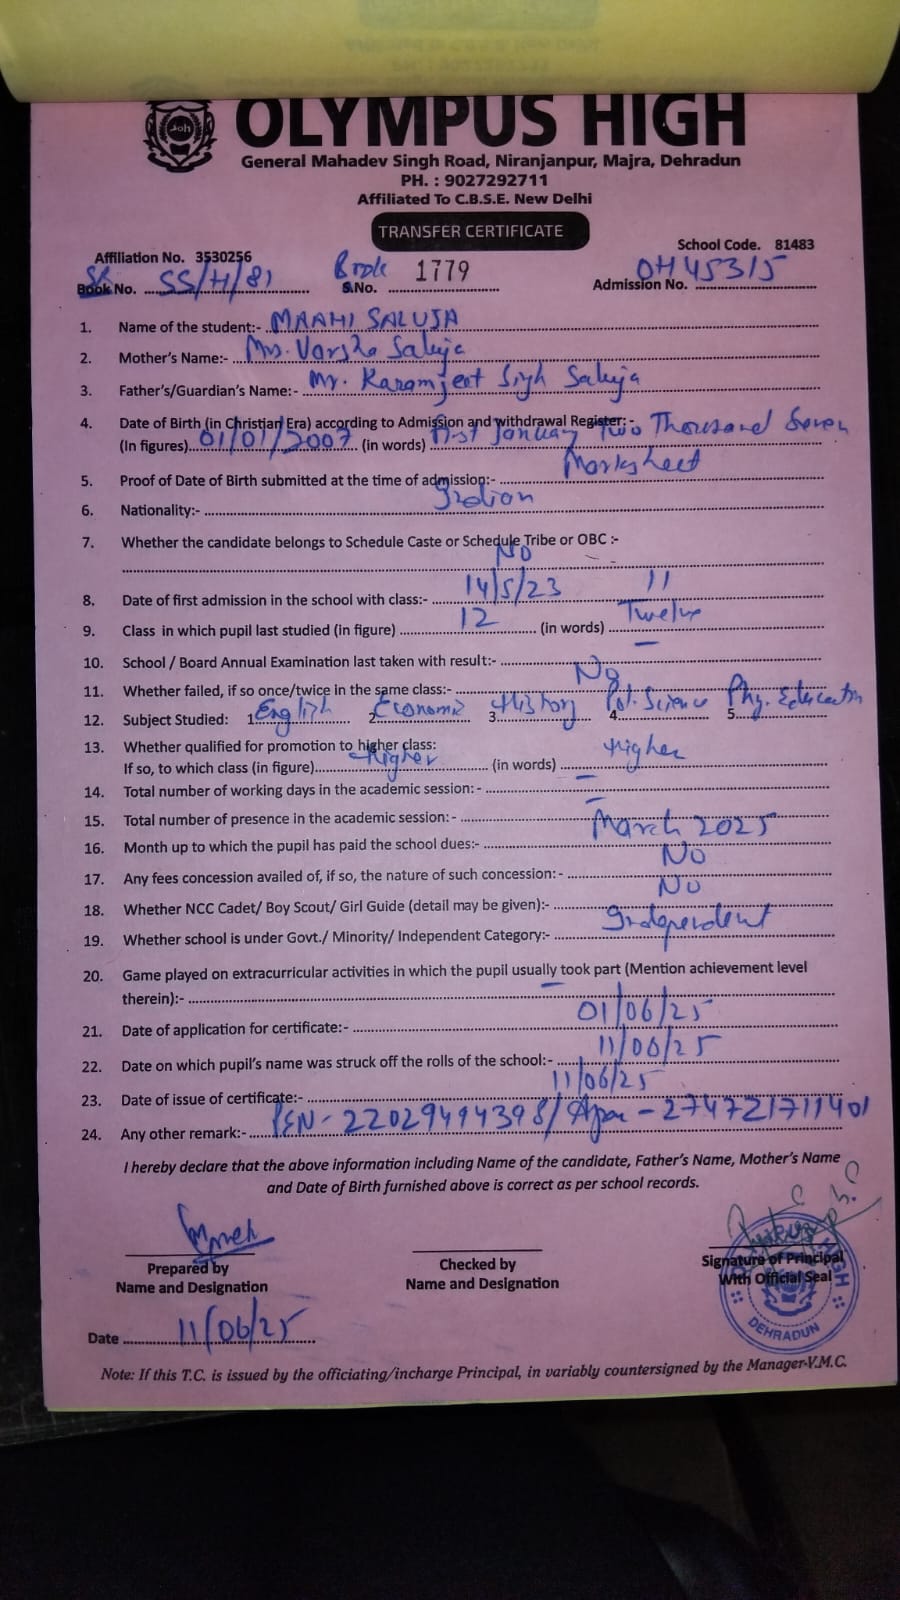 OLYMPUS HIGH
General Mahadev Singh Road, Niranjanpur, Majra, Dehradun
PH. : 9027292711
Affiliated To C.B.S.E. New Delhi
TRANSFER CERTIFICATE
Affiliation No. 3530256 School Code. 81483
SR Book No. SS/H/81 Book S.No. 1779 Admission No. OH45315
1. Name of the student:- MAAHI SALUJA
2. Mother's Name:- Mrs. Varsha Saluja
3. Father's/Guardian's Name:- Mr. Karamjeet Singh Saluja
4. Date of Birth (in Christian Era) according to Admission and withdrawal Register:-
(In figures) 01/01/2007 (in words) First January Two Thousand Seven
5. Proof of Date of Birth submitted at the time of admission:- Marksheet
6. Nationality:- Indian
7. Whether the candidate belongs to Schedule Caste or Schedule Tribe or OBC :-
No
8. Date of first admission in the school with class:- 14/5/23 11
9. Class in which pupil last studied (in figure) 12 (in words) Twelve
10. School / Board Annual Examination last taken with result:- —
11. Whether failed, if so once/twice in the same class:- No
12. Subject Studied: 1 English 2 Economic 3 History 4 Pol. Science 5 Phy. Education
13. Whether qualified for promotion to higher class:
If so, to which class (in figure) Higher (in words) Higher
14. Total number of working days in the academic session: - —
15. Total number of presence in the academic session:- —
16. Month up to which the pupil has paid the school dues:- March 2025
17. Any fees concession availed of, if so, the nature of such concession: - No
18. Whether NCC Cadet/ Boy Scout/ Girl Guide (detail may be given):- No
19. Whether school is under Govt./ Minority/ Independent Category:- Independent
20. Game played on extracurricular activities in which the pupil usually took part (Mention achievement level
therein):- —
21. Date of application for certificate:- 01/06/25
22. Date on which pupil's name was struck off the rolls of the school:- 11/06/25
23. Date of issue of certificate:- 11/06/25
24. Any other remark:- PEN - 22029494398/ Apar - 274721711401
I hereby declare that the above information including Name of the candidate, Father's Name, Mother's Name
and Date of Birth furnished above is correct as per school records.
Prepared by Checked by Signature of Principal
Name and Designation Name and Designation With Official Seal
DEHRADUN
Date 11/06/25
Note: If this T.C. is issued by the officiating/incharge Principal, in variably countersigned by the Manager-V.M.C.